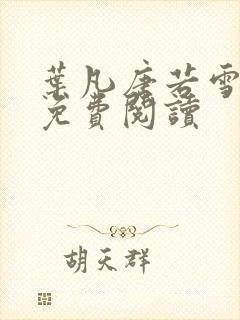 葉凡唐若雪
免費閱讀
胡天群